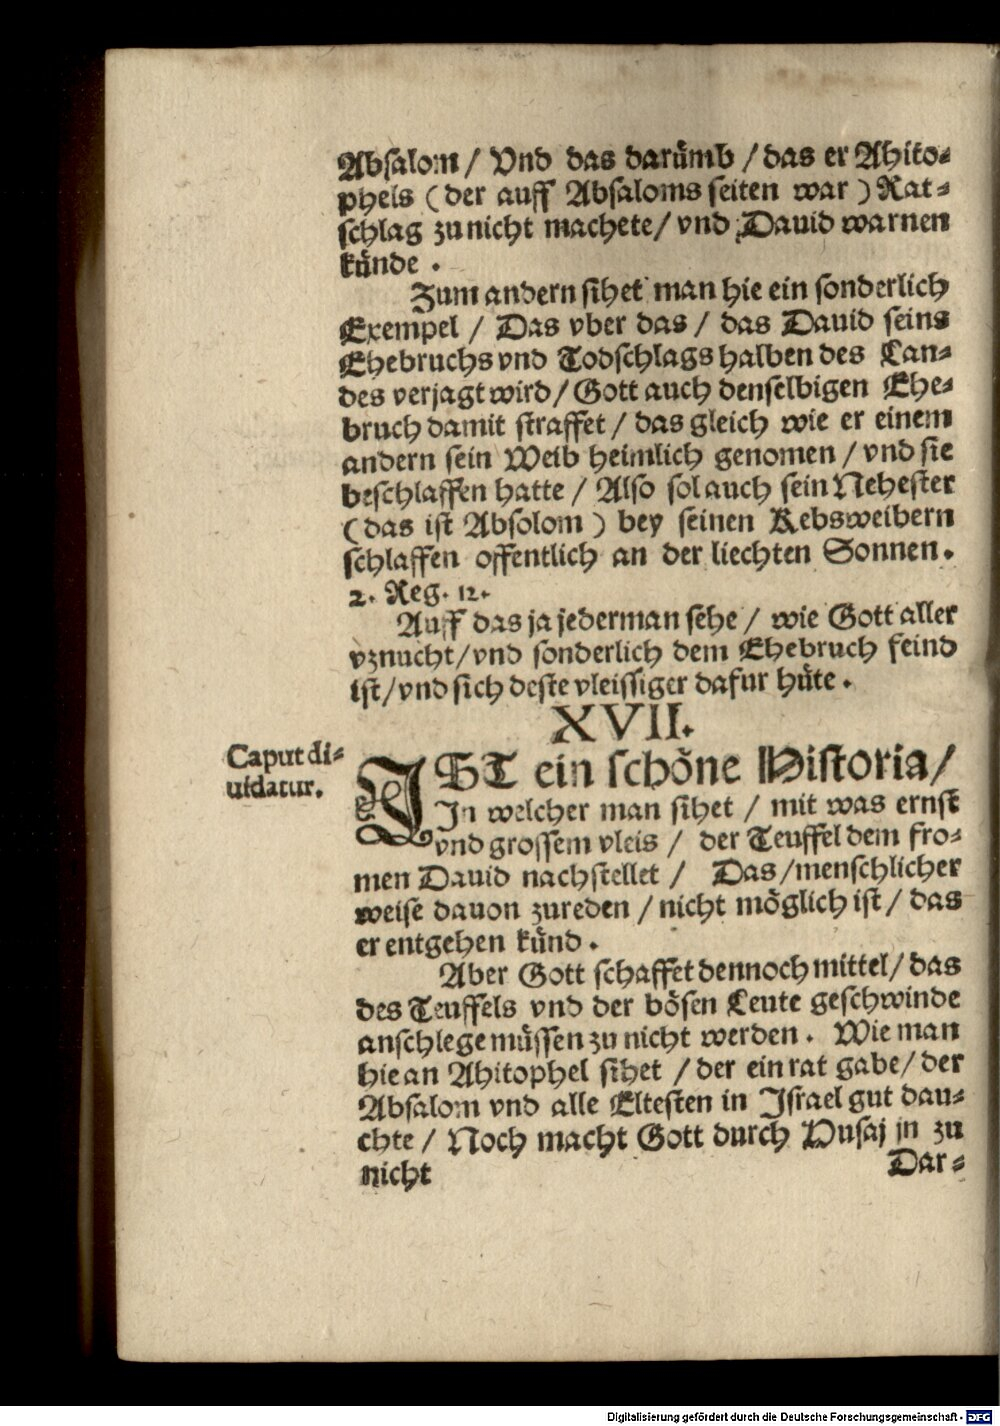 Absalom / Vnd das darümb / das er Ahito-
phels (der auff Absaloms seiten war) Rat-
schlag zu nicht machete / vnd Dauid warnen
künde.
Zum andern sihet man hie ein sonderlich
Exempel / Das vber das / das Dauid seins
Ehebruchs vnd Todschlags halben des Lan-
des verjagt wird / Gott auch denselbigen Ehe-
bruch damit straffet / das gleich wie er einem
andern sein Weib heimlich genomen / vnd sie
beschlaffen hatte / Also sol auch sein Nehester
(das ist Absolom) bey seinen Kebsweibern
schlaffen offentlich an der liechten Sonnen.
2. Reg. 12.
Auff das ja jederman sehe / wie Gott aller
vznucht / vnd sonderlich dem Ehebruch feind
ist / vnd sich deste vleissiger dafur hüte.
XVII.
Caput di-
uidatur.
IST ein schöne Historia /
In welcher man sihet / mit was ernst
vnd grossem vleis / der Teuffel dem fro-
men Dauid nachstellet / Das / menschlicher
weise dauon zureden / nicht möglich ist / das
er entgehen künd.
Aber Gott schaffet dennoch mittel / das
des Teuffels vnd der bösen Leute geschwinde
anschlege müssen zu nicht werden. Wie man
hie an Ahitophel sihet / der ein rat gabe / der
Absalom vnd alle Eltesten in Israel gut dau-
chte / Noch macht Gott durch Husaj jn zu
nicht
Dar-
Digitalisierung gefördert durch die Deutsche Forschungsgemeinschaft - DFG